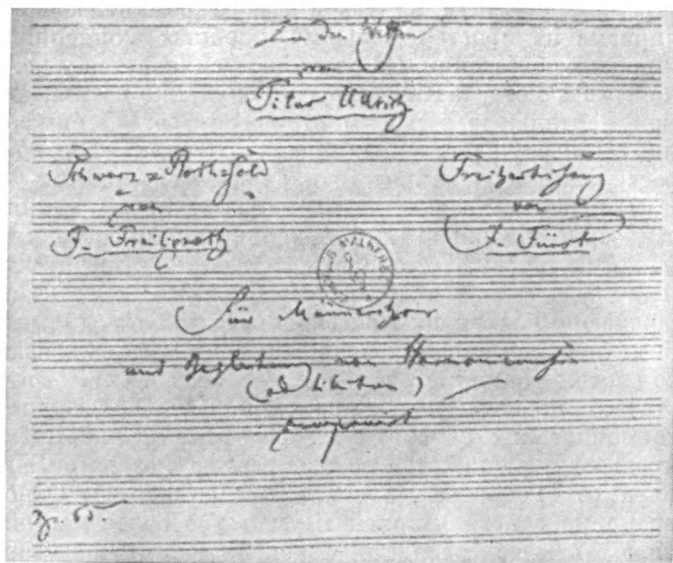 Zu den Waffen
von
Titus Ullrich
Schwarz=Roth=Gold
von
F. Freiligrath
Freiheitssang
von
J. Fürst
Für Männerchor
und Begleitung von Harmoniemusik
(ad libitum)
componirt
Op. 65.